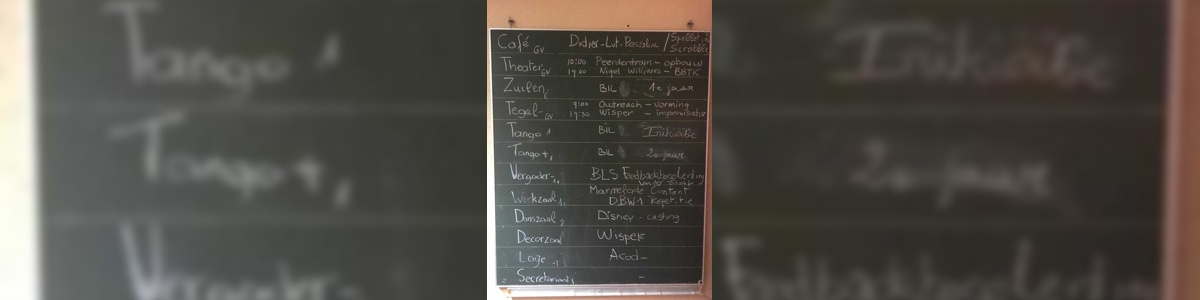 Café GV Didier-Lut-Pascaline / Spaghetti
Scrabble
Theater GV 10:00 Peerdentram - opbouw
19:00 Nigel Williams - BBTK
Zuilen BIL 1e jaar
Tegel- GV 9:00 Outreach - vorming
19:30 Wisper - improvisatie
Tango 1 BIL Initiatie
Tango +1 BIL 2e jaar
Vergader- BLS Feedbackbegeleiding
Werkzaal Marmelade Content
DBW1 Repetitie
Danszaal 2 Disney - casting
Decorzaal Wisper
Loge -1 Acod-
Secretariaat -